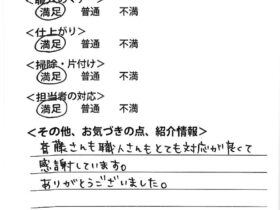 満足 普通 不満
<仕上がり>
満足 普通 不満
<掃除・片付け>
満足 普通 不満
<担当者の対応>
満足 普通 不満
<その他、お気づきの点、紹介情報>
斉藤さんも職人さんもとても対応が良くて
感謝しています。
ありがとうございました。